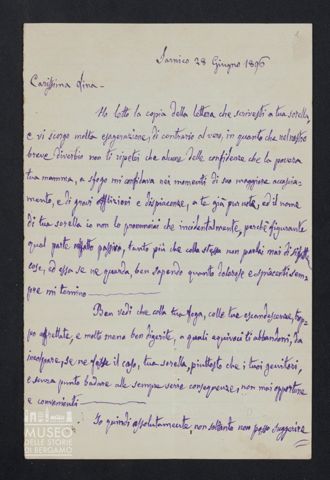 Sarnico 28 Giugno 1896
Carissima Lina -
Ho letto la copia della lettera che scrivesti a tua sorella,
e vi scorgo molta esagerazione, di contrario al vero, in quanto che nel nostro
breve diverbio non ti ripetei che alcune delle confidenze che la povera
tua mamma, a sfogo mi confidava nei momenti di suo maggiore accascia-
mento, e di gravi afflizioni e dispiacenze, a te già pur note, ed il nome
di tua sorella io non lo pronunciai che incidentalmente, perché figurante
qual parte affatto passiva, tanto più che colla stessa non parlai mai di siffatte
cose, ed essa se ne guarda, ben sapendo quanto dolorose e spiacenti sem-
pre mi tornino
Ben vedi che colla tua foga, colle tue escandescenze, trop-
po affrettate, e molto meno ben digerite, a quali equivoci ti abbandoni, da
incolpare, se ne fosse il caso, tua sorella, piuttosto che i tuoi genitori,
e senza punto badare alle sempre serie conseguenze, non mai opportune
e convenienti
Io quindi assolutamente, non soltanto non posso suggerire
MUSEO
DELLE STORIE
DI BERGAMO